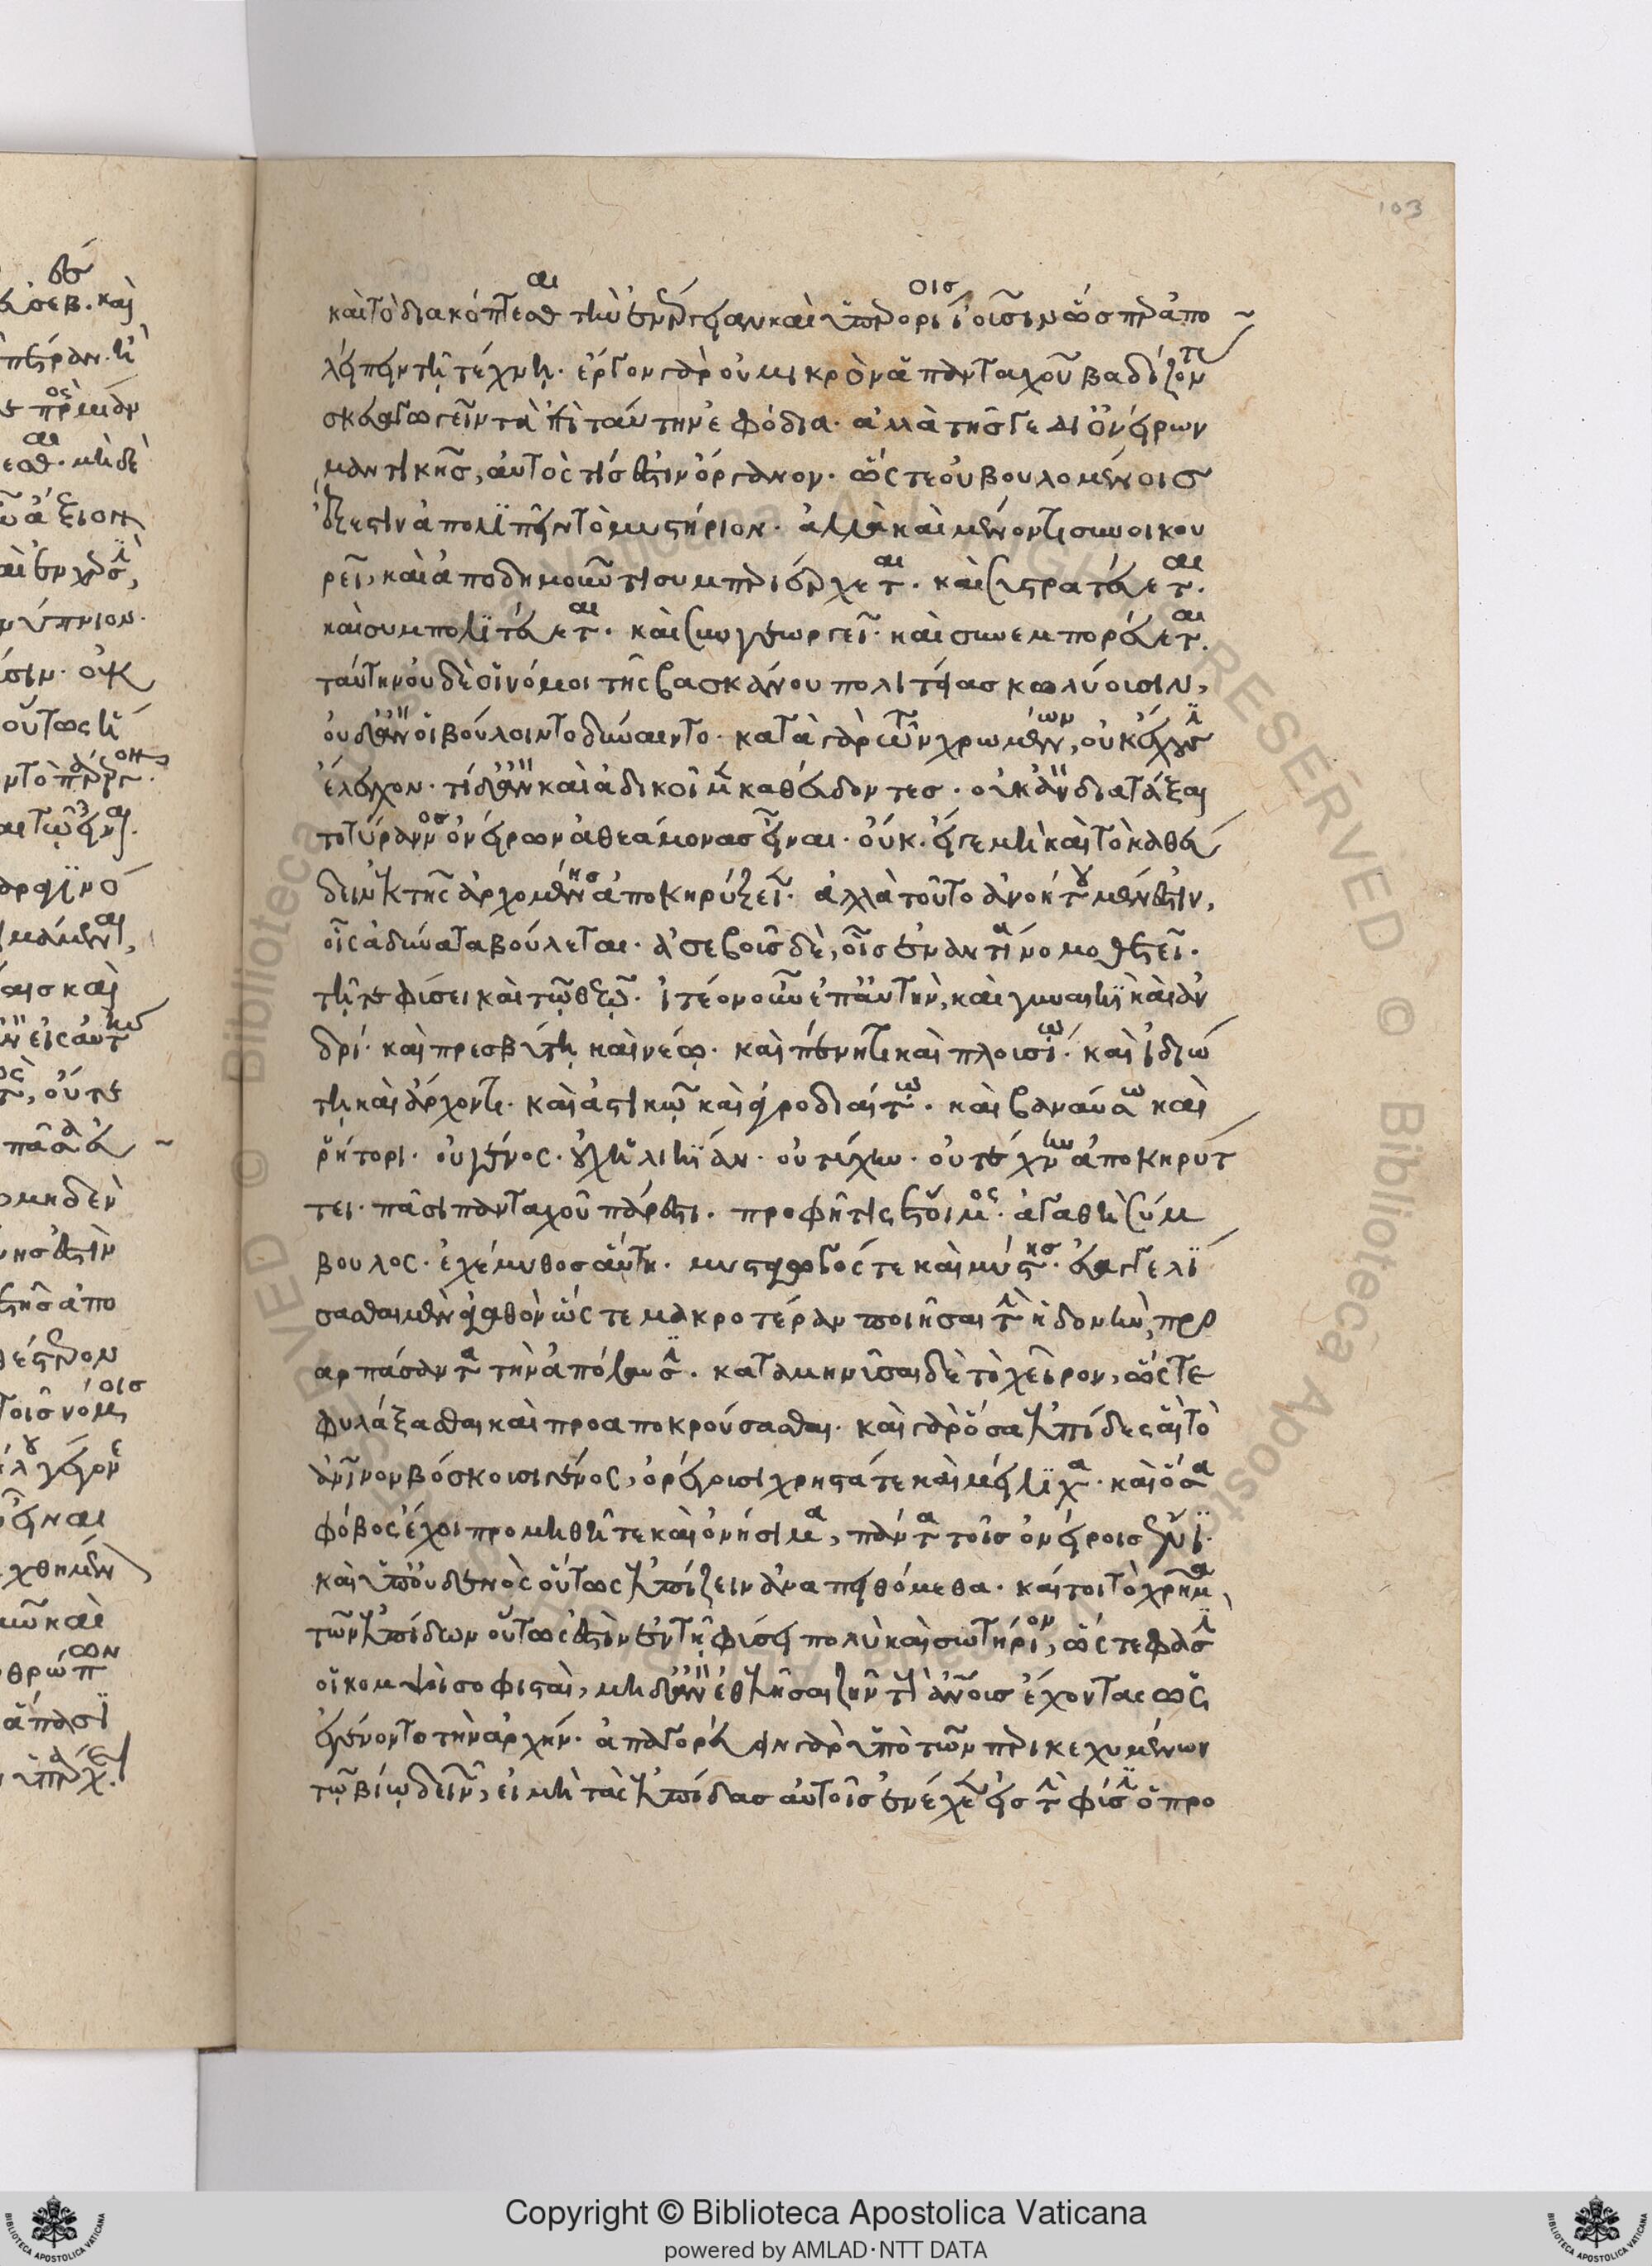 καὶ τὸ διακόπτεσθαι τὴν ἐνέργειαν καὶ ὑπερορίοις οὖσιν ὥσπερ ἀπο
λείπειν τῇ τέχνῃ· ἔργον γὰρ οὐ μικρὸν ἁπανταχοῦ βαδίζοντι
σκευαγωγεῖν τὰ ἐπὶ ταύτην ἐφόδια· ἀλλὰ τῆς γε δι' ὀνείρων
μαντικῆς, αὐτός τίς ἐστιν ὄργανον· ὥστε οὐ βουλομένοις
ἔξεστιν ἀπολιπεῖν τὸ μυστήριον· ἀλλὰ καὶ μένοντι συνοικου
ρεῖ, καὶ ἀποδημοῦντι συμπεριέρχεται· καὶ συστρατεύεται·
καὶ συμπολιτεύεται· καὶ συγγεωργεῖ· καὶ συνεμπορεύεται·
ταύτην οὐδὲ οἱ νόμοι τῆς βασκάνου πολιτείας κωλύουσιν,
οὐδ' ἂν εἰ βούλοιντο δύναιντο· κατὰ γὰρ τῶν χρωμένων, οὐκ ἔχουσιν
ἔλεγχον· τί δ' ἂν καὶ ἀδικοῖμεν καθεύδοντες· οὐκ ἂν διατάξαι
το τύραννος ὀνείρων ἀθεάμονας εἶναι· οὐκ· εἴγε μὴ καὶ τὸ καθεύ
δειν ἐκ τῆς ἀρχομένης ἀποκηρύξει· ἀλλὰ τοῦτο ἀνοήτου μέν ἐστιν,
οἷς ἀδύνατα βούλεται· ἀσεβοῦς δὲ, οἷς ἐναντία νομοθετεῖ·
τῇ τε φύσει καὶ τῷ θεῷ· ἰτέον οὖν ἐπ' αὐτὴν, καὶ γυναικὶ καὶ ἀν
δρί· καὶ πρεσβύτῃ καὶ νέῳ· καὶ πένητι καὶ πλουσίῳ· καὶ ἰδιώ
τῃ καὶ ἄρχοντι· καὶ ἀστικῷ καὶ ἀγροδιαίτῳ· καὶ βαναύσῳ καὶ
ῥήτορι· οὐ γένος· οὐχ ἡλικίαν· οὐ τύχην· οὐ τέχνην ἀποκηρύτ
τει· πᾶσι πανταχοῦ πάρεστι· προφῆτις ἕτοιμος· ἀγαθὴ σύμ
βουλος· ἐχέμυθος αὕτη· μυσταγωγός τε καὶ μύστης· εὐαγγελί
σασθαι μὲν ἀγαθὸν ὥστε μακροτέραν ποιῆσαι τὴν ἡδονὴν, προ
αρπάσαντα τὴν ἀπόλαυσιν· καταμηνῦσαι δὲ τὸ χεῖρον, ὥστε
φυλάξασθαι καὶ προαποκρούσασθαι· καὶ γὰρ ὅσα ἐλπίδες αἳ τὸ
ἀνθρώπινον βόσκουσι γένος, ὀρέγουσι χρηστά τε καὶ μείλιχα· καὶ ὅσα
φόβος ἔχοι προμηθῆ τε καὶ ὀνήσιμα, πάντα τοῖς ὀνείροις ἔνι·
καὶ ὑπ' οὐδενὸς οὕτως ἐλπίζειν ἀναπειθόμεθα· καίτοι τὸ χρῆμα
τῶν ἐλπίδων οὕτως ἐστὶν ἐν τῇ φύσει πολὺ καὶ σωτήριον, ὥστε φασὶν
οἱ κομψοὶ σοφισταὶ, μὴ δ' ἂν ἐθελῆσαι ζῆν τοὺς ἀνθρώπους ἔχοντας ὡς
ἐγένοντο τὴν ἀρχήν· ἀπαγορεύειν γὰρ ὑπὸ τῶν περικεχυμένων
τῷ βίῳ δεινῶν, εἰ μὴ τὰς ἐλπίδας αὐτοῖς ἐνέχεεν εἰς τὴν φύσιν ὁ προ
103
Copyright © Biblioteca Apostolica Vaticana
powered by AMLAD·NTT DATA